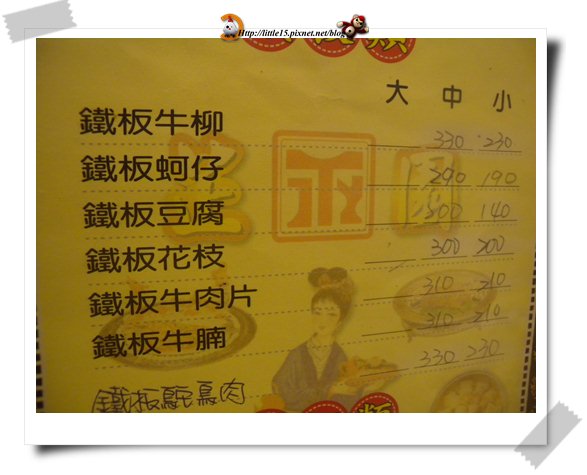 Http://little15.pixnet.net/blog
類
大 中 小
鐵板牛柳 330 230
鐵板蚵仔 290 190
鐵板豆腐 200 140
鐵板花枝 300 200
鐵板牛肉片 310 210
鐵板牛腩 310 210
鐵板鴕鳥肉 330 230